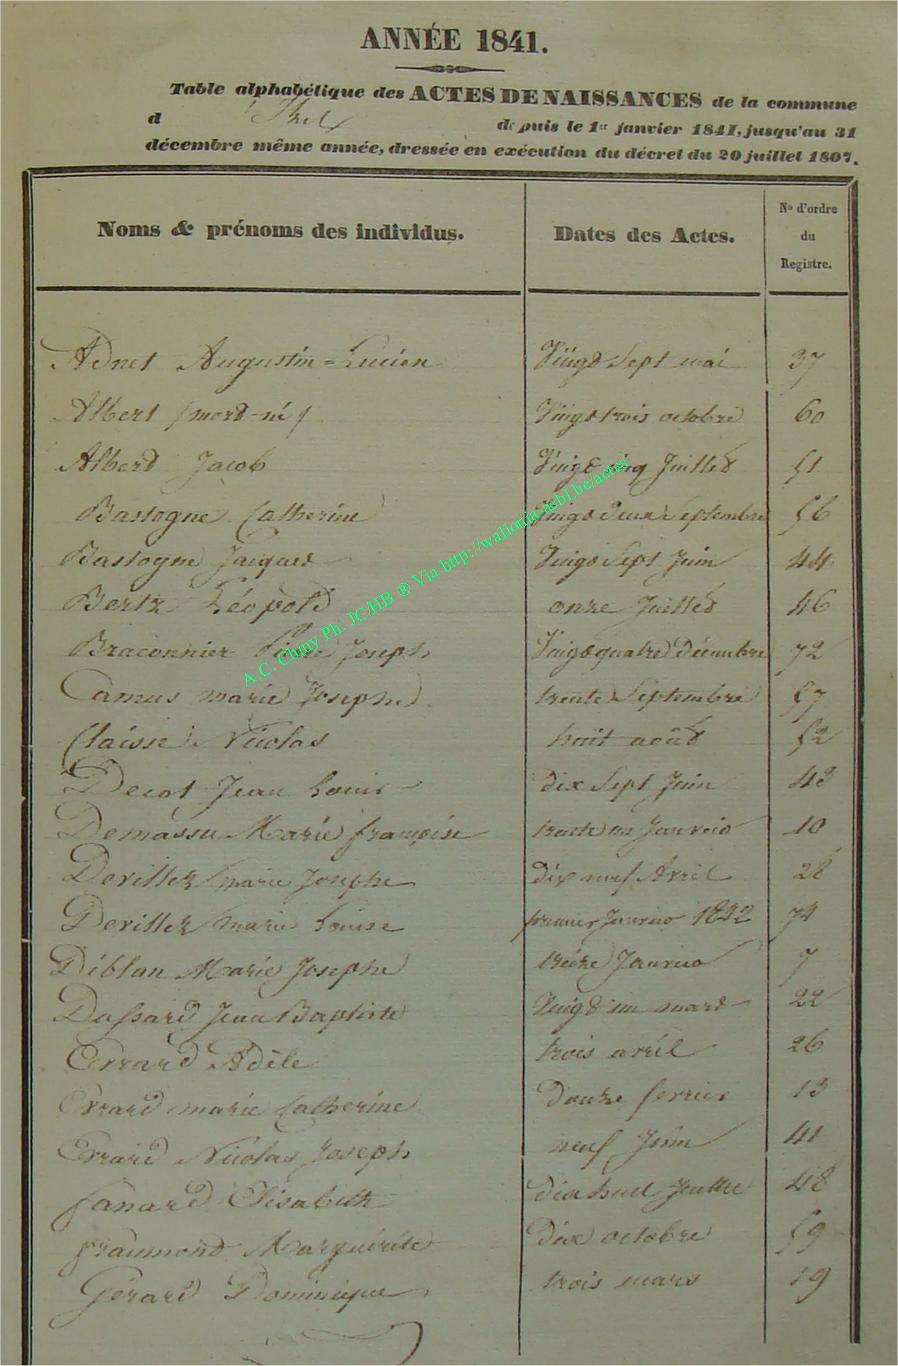 ANNÉE 1841.
Table alphabétique des ACTES DE NAISSANCES de la commune
d' Izel depuis le 1er janvier 1841, jusqu'au 31
décembre même année, dressée en exécution du décret du 20 juillet 1807.
Noms & prénoms des individus. Dates des Actes. No d'ordre du Registre.
Adnet Augustin-Lucien Vingt Sept mai 37
Albert (mort-né) Vingt trois octobre 60
Albert Jacob Vingt cinq Juillet 51
Bastogne Catherine Vingt deux Septembre 56
Bastogne Jacques Vingt Sept Juin 44
Bertz Léopold onze Juillet 46
Braconnier Pierre Joseph Vingt quatre décembre 72
Camus marie Josephe trente Septembre 57
Claisse Nicolas huit août 52
Decot Jean Louis dix Sept Juin 43
Demassu Marie françoise trente un Janvier 10
Devillez marie Josephe dix neuf Avril 28
Devillez marie Louise premier Janvier 1842 74
Diblan Marie Josephe treize Janvier 7
Dussard Jean Baptiste Vingt un mars 22
Errard Adèle trois avril 26
Errard marie Catherine douze fevrier 13
Errard Nicolas Joseph neuf Juin 41
fanard Elisabeth dix huit Juillet 48
fraumond Marguerite dix octobre 59
Gérard Dominique trois mars 19
A.C. Chiny Ph. JC/HB ® Via http://wallonia.asbl.be/actes